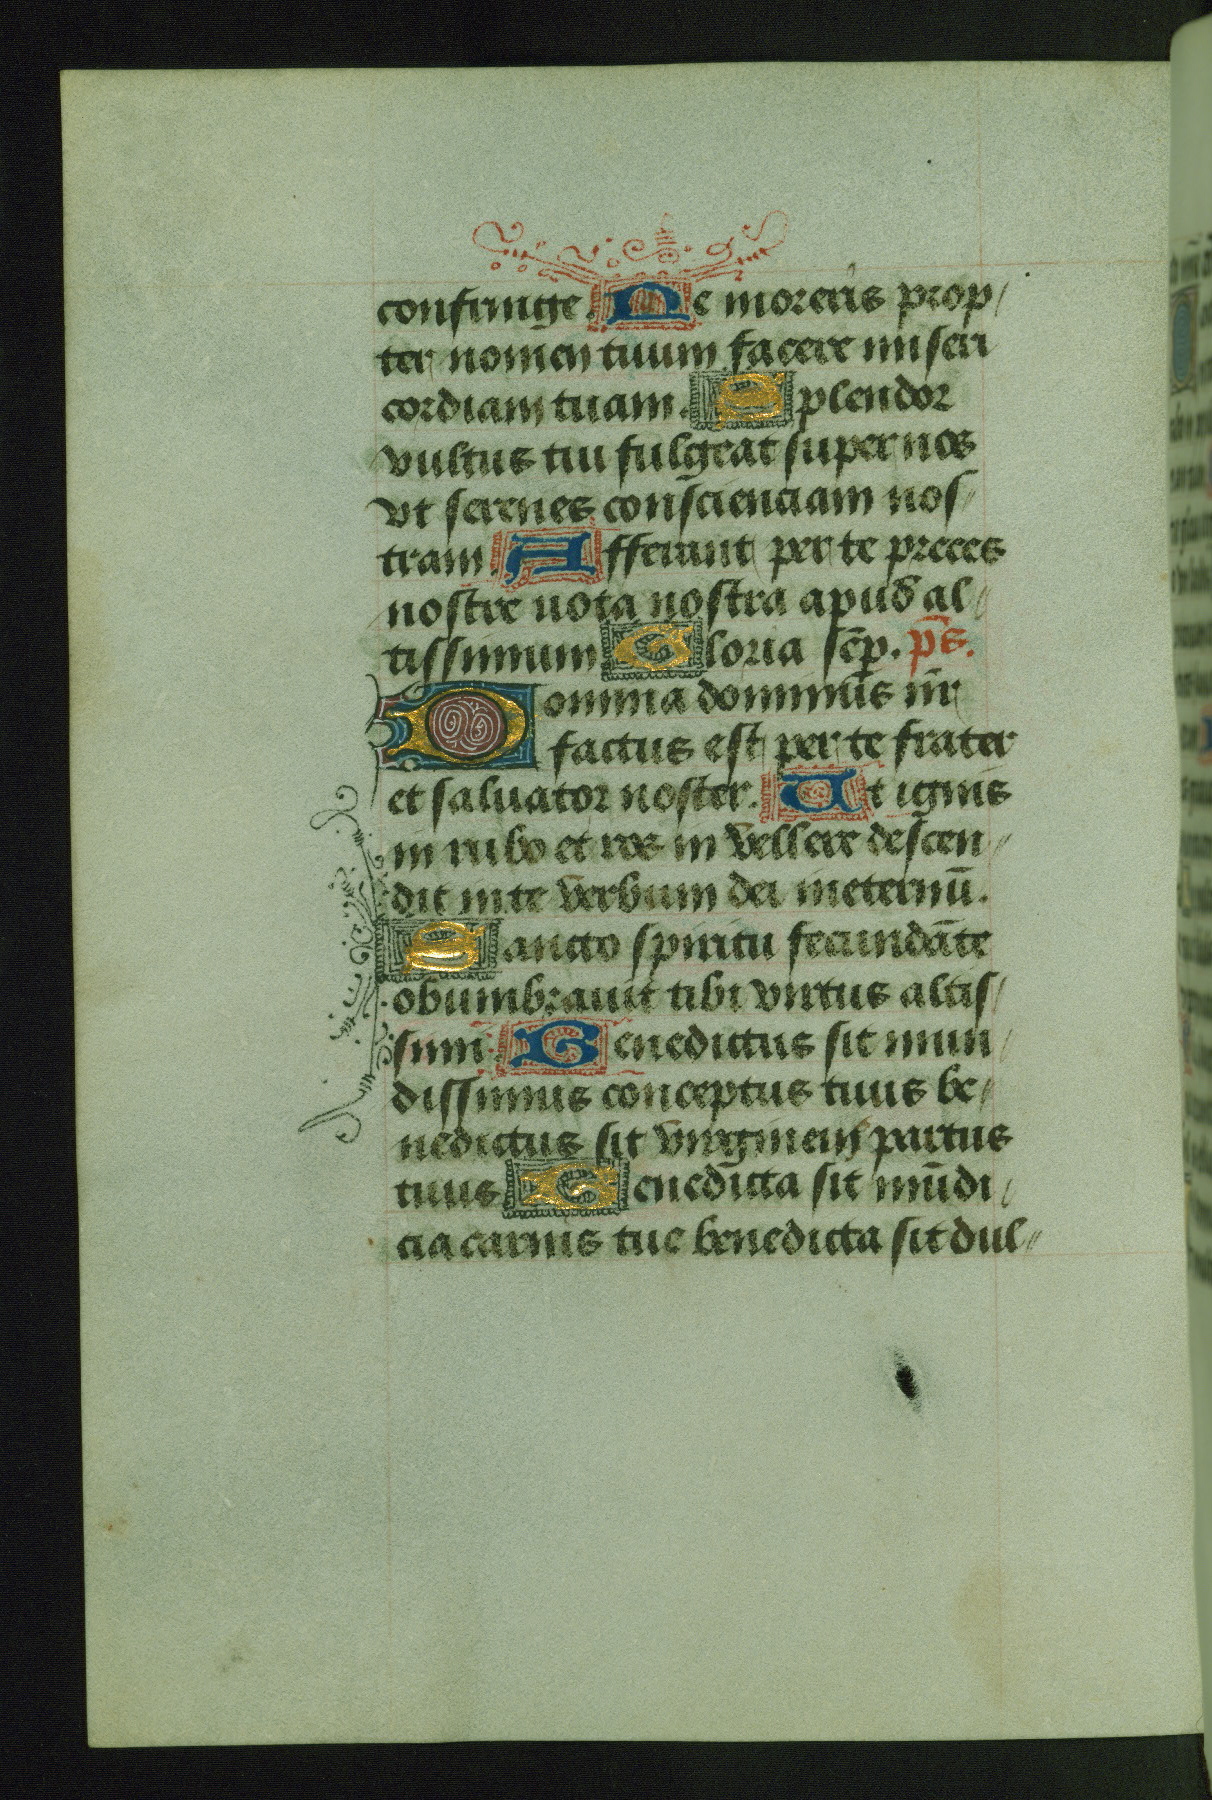 confringe. Ne moreris prop/
ter nomen tuum facere miseri
cordiam tuam. Splendor
vultus tui fulgeat super nos
vt serenes consciençiam nos/
tram. Afferunt per te preces
nostre uota nostra apud al/
tissimum Gloria sc̄p. p̄s.
Domina dominus nr̄
factus est per te frater
et saluator noster. Ut ignis
in rubo et ros in vellere descen/
dit in te verbum dei in eternū.
Sancto spiritu fecundāte
obumbrauit tibi virtus altis/
simi. Benedictus sit mun/
dissimus conceptus tuus be/
nedictus sit virgineus partus
tuus. Benedicta sit mūdi/
cia carnis tue benedicta sit dul//